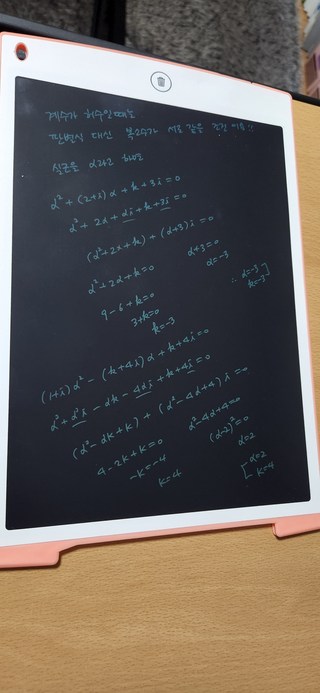 계수가 허수일때는
판별식 대신 복소수가 서로 같을 조건 이용!!
실근을 α라고 하면
α²+(2+i)α+k+3i=0
α²+2α+αi+k+3i=0
(α²+2α+k)+(α+3)i=0
α²+2α+k=0 α+3=0
α=-3
9-6+k=0
3+k=0
k=-3
∴ α=-3
k=-3
(1+i)α²-(k+4i)α+k+4i=0
α²+α²i-αk-4αi+k+4i=0
(α²-αk+k)+(α²-4α+4)i=0
4-2k+k=0 α²-4α+4=0
-k=-4 (α-2)²=0
k=4 α=2
[α=2
k=4